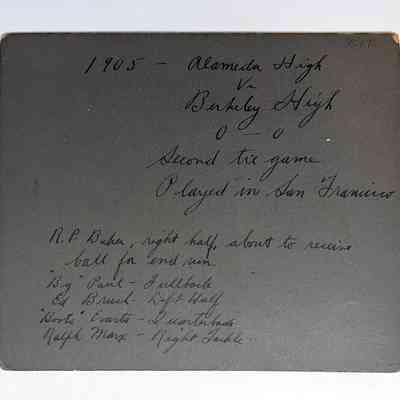 1905 - Alameda High
Vs
Berkeley High
0 - 0
Second tie game
Played in San Francisco
R.P. Baker, right half, about to receive
ball for end run
"Big" Paul - Fullback
Ed Brush - Left Half
"Boots" Evarts - Quarterback
Ralph Marx - Right Tackle